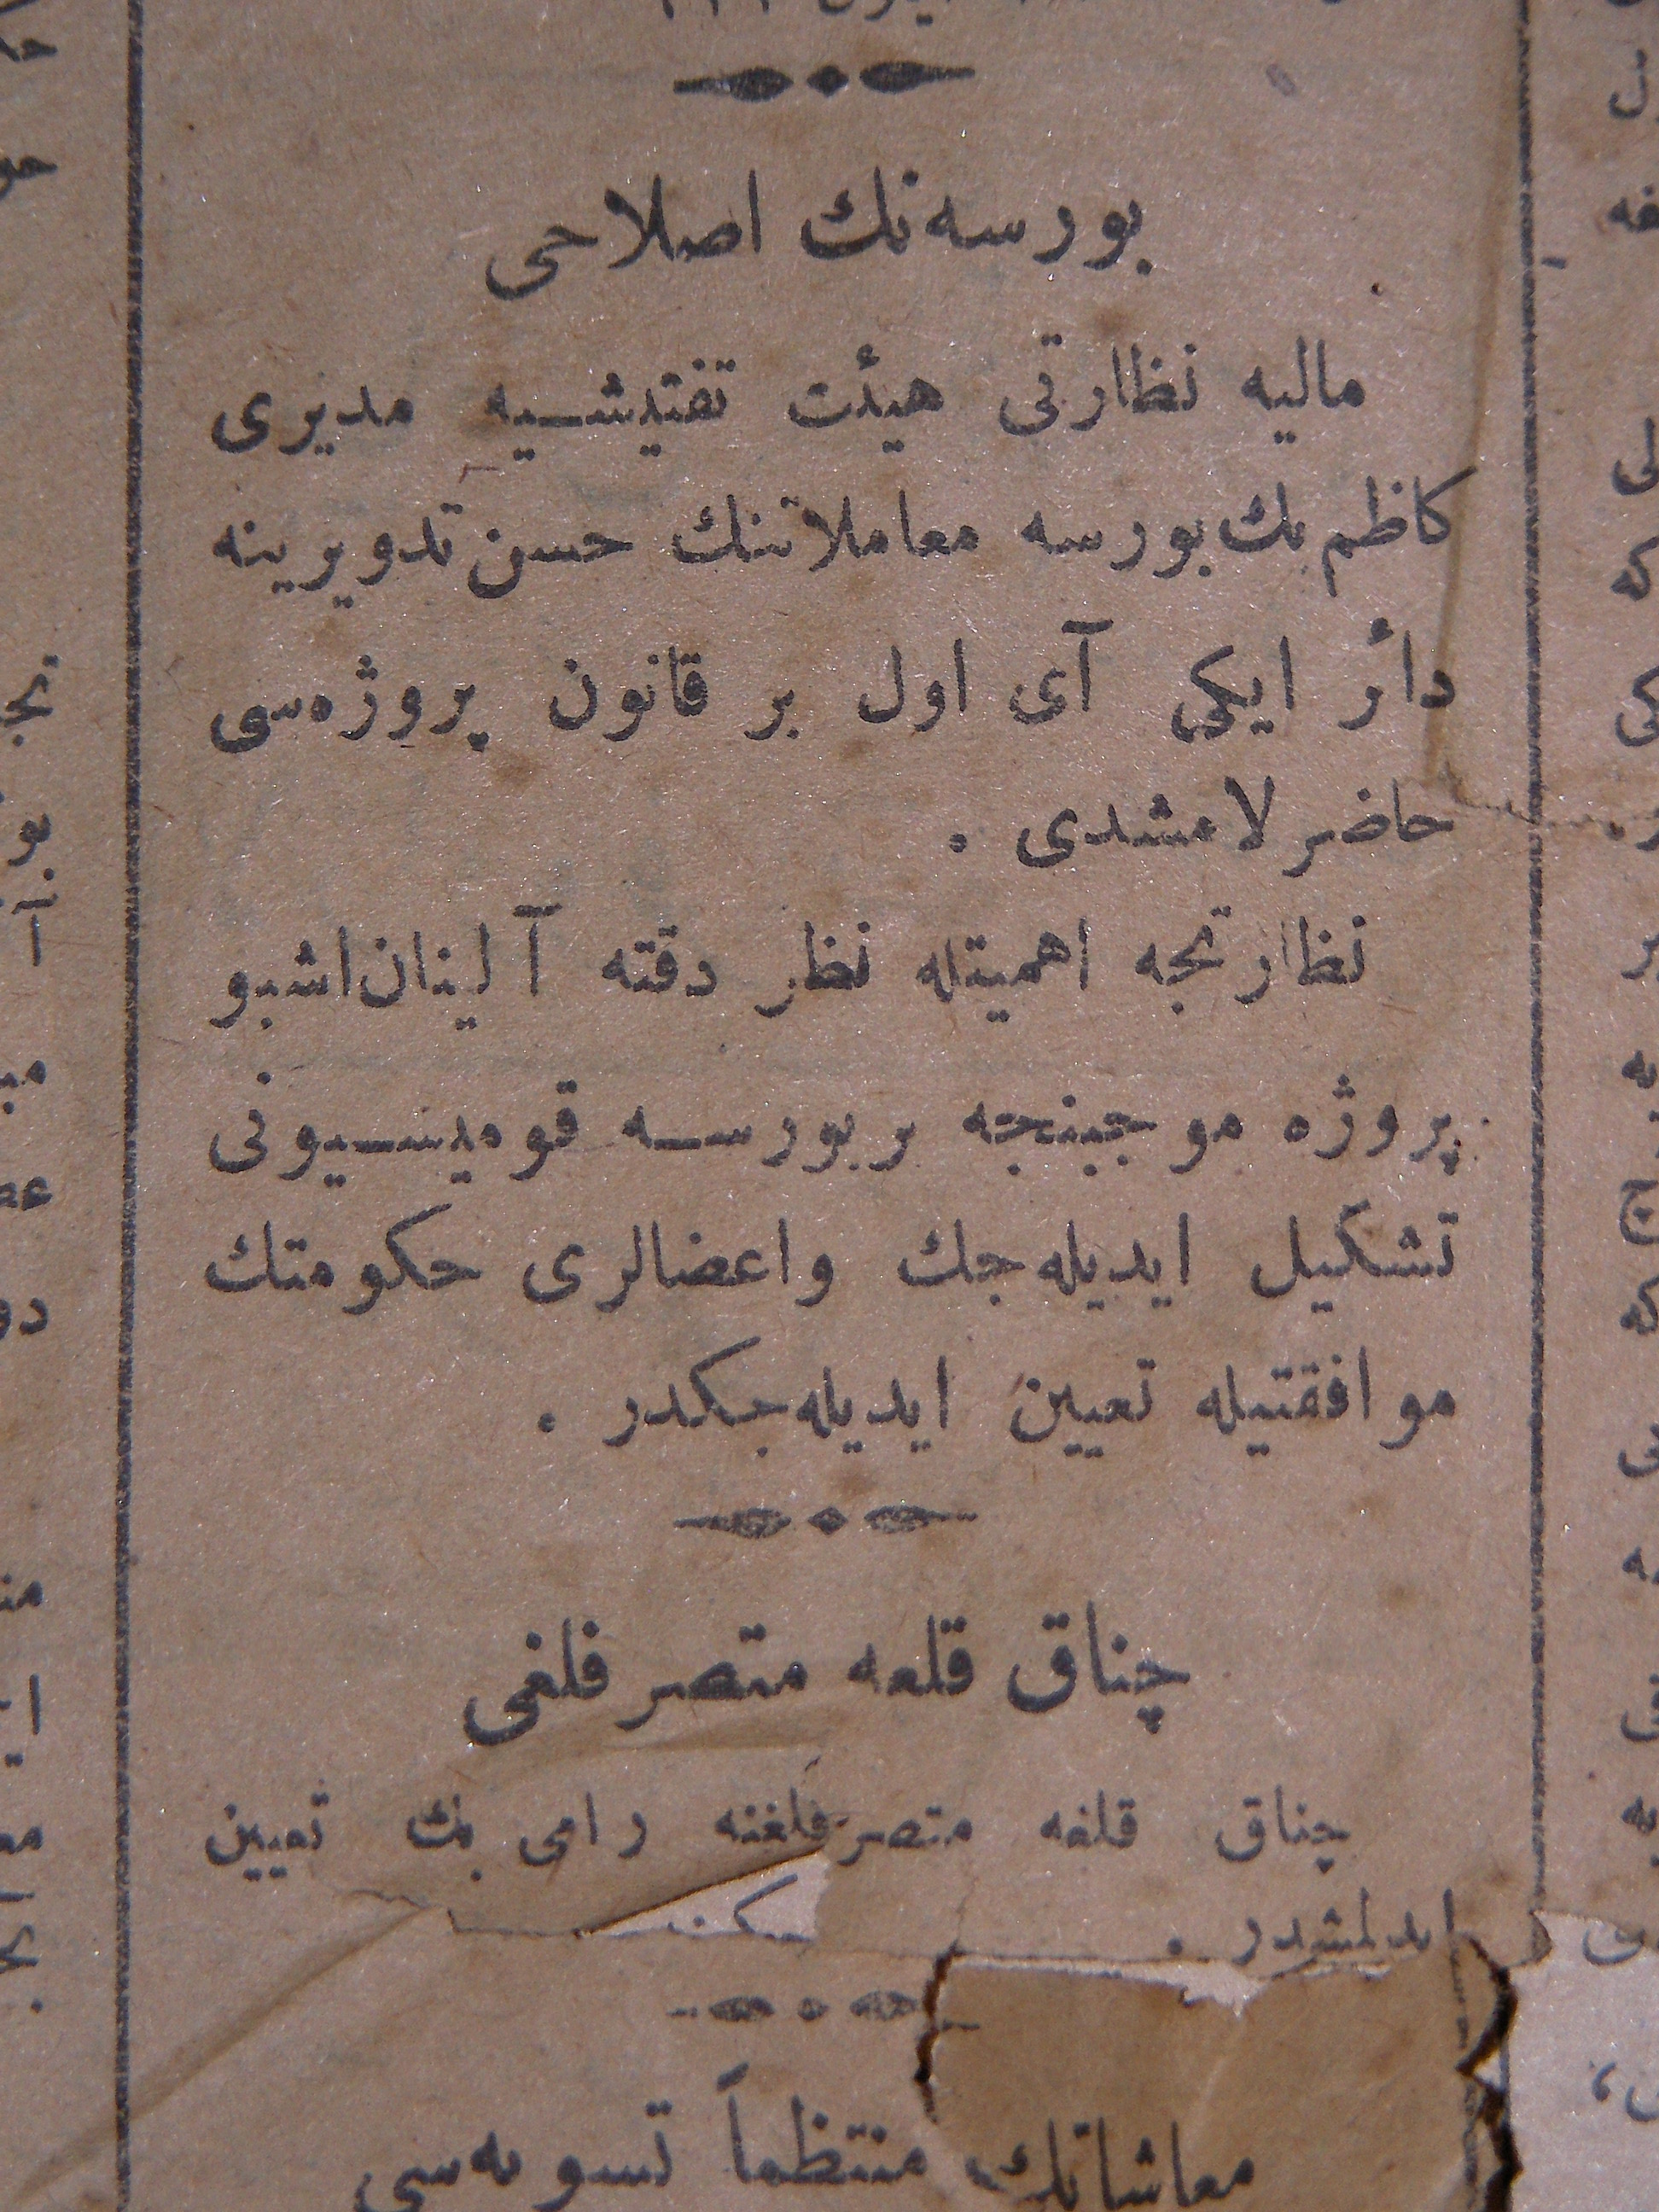 بورسه‌نك اصلاحی
مالیه نظارتی هیئت تفتیشیه مدیری
كاظم بك بورسه معاملاتنك حسن تدویرینه
دائر ایكی آی اول بر قانون پروژه‌سی
حاضرلامشدی .
نظارتجه اهمیتله نظر دقته آلینان اشبو
پروژه موجبنجه بر بورسه قومیسیونی
تشكیل ایدیله‌جك واعضالری حكومتك
موافقتیله تعیین ایدیله‌جكدر .
چناق قلعه متصرفلغی
چناق قلعه متصرفلغنه رامی بك تعیین
ایدلمشدر .
معاشاتك منتظماً تسویه‌سی